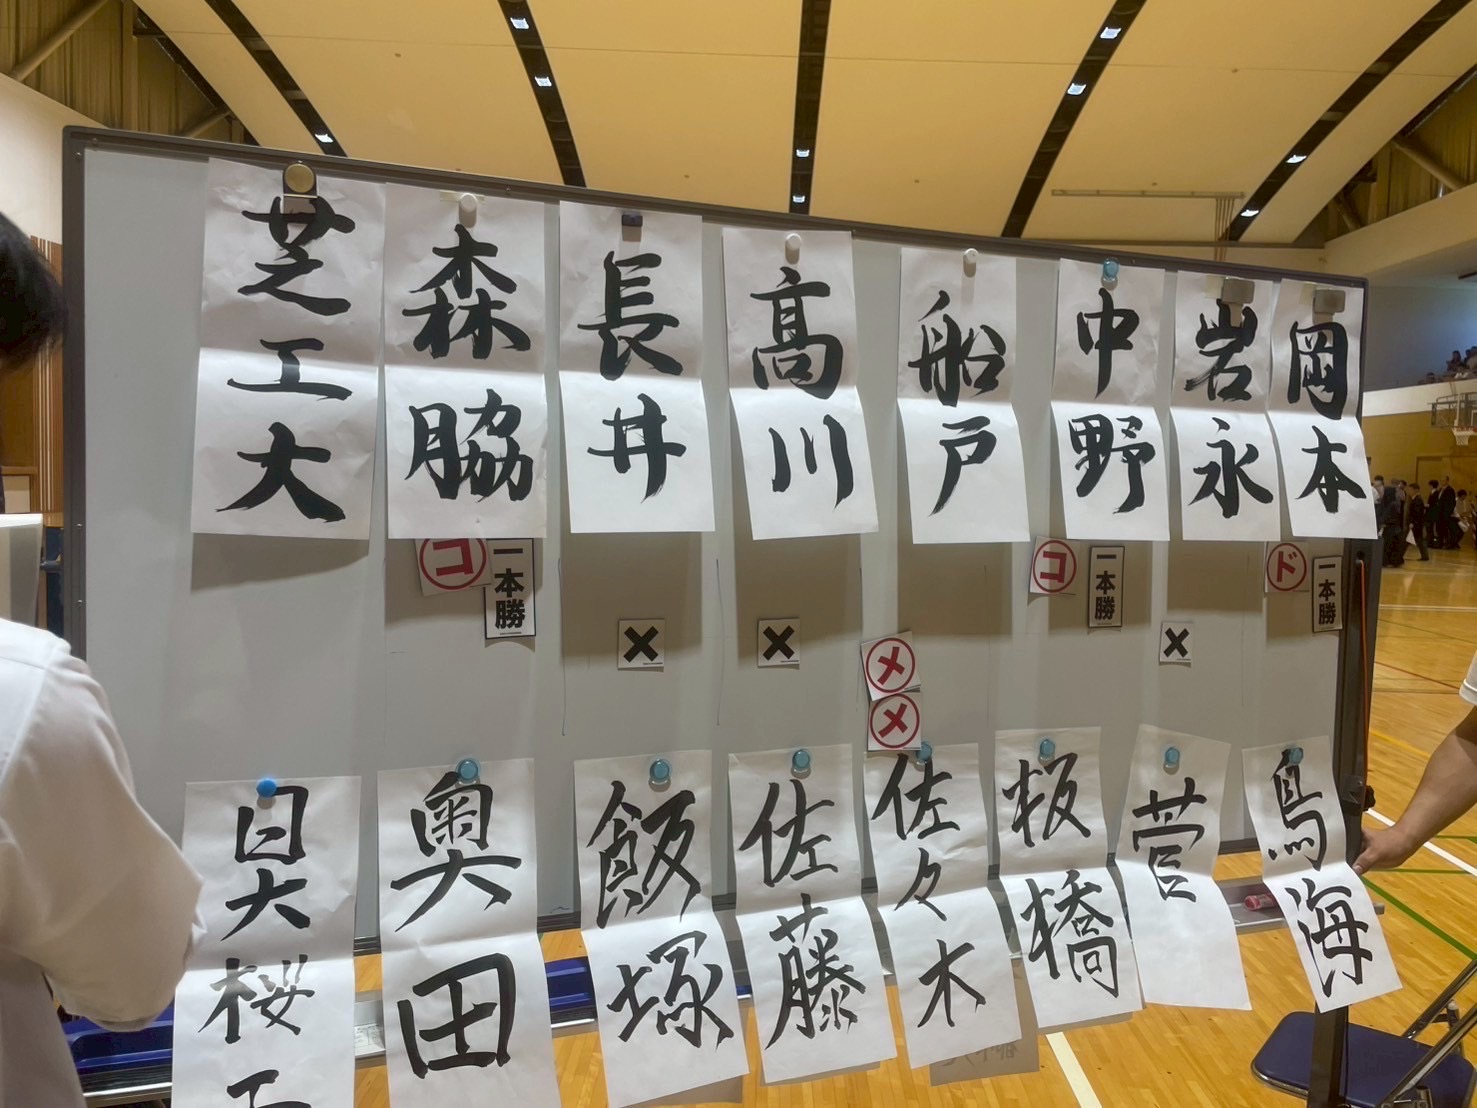 芝工大
森脇
長井
高川
船戸
中野
岩永
岡本
コ
一本勝
×
×
メ
メ
コ
一本勝
×
ド
一本勝
日大桜工
奥田
飯塚
佐藤
佐々木
板橋
菅
鳥海